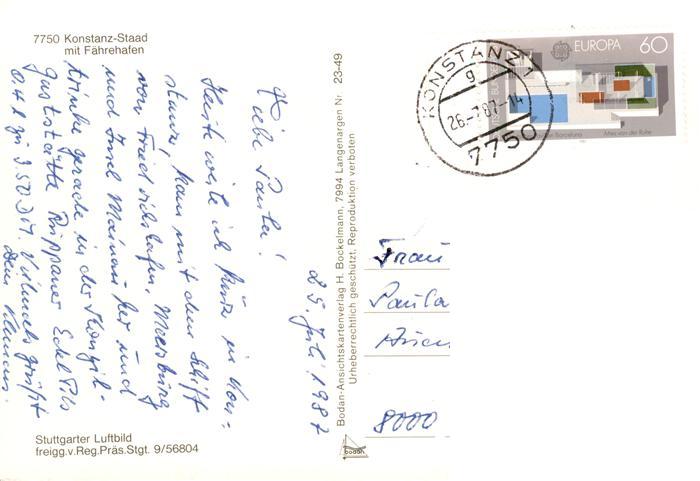 7750 Konstanz-Staad
mit Fährehafen
25. Juli 1987
Liebe Paula!
Heute weile ich kurz in Kon-
stanz, kam mit dem Schiff
von Friedrichshafen, Meersburg
und Insel Mainau her und
trinke gerade in der Konzil-
gaststätte Ruppaner Edel Pils
0,4 l zu 3.50 DM. Vielmals grüßt
Dein Klemens.
Stuttgarter Luftbild
freigg.v.Reg.Präs.Stgt. 9/56804
Bodan-Ansichtskartenverlag H. Bockelmann, 7994 Langenargen Nr. 23-49
Urheberrechtlich geschützt, Reproduktion verboten
bodan
EUROPA 60
Barcelona Mies van der Rohe
KONSTANZ 1
g
26.-7.87-14
7750
Frau
Paula
8000